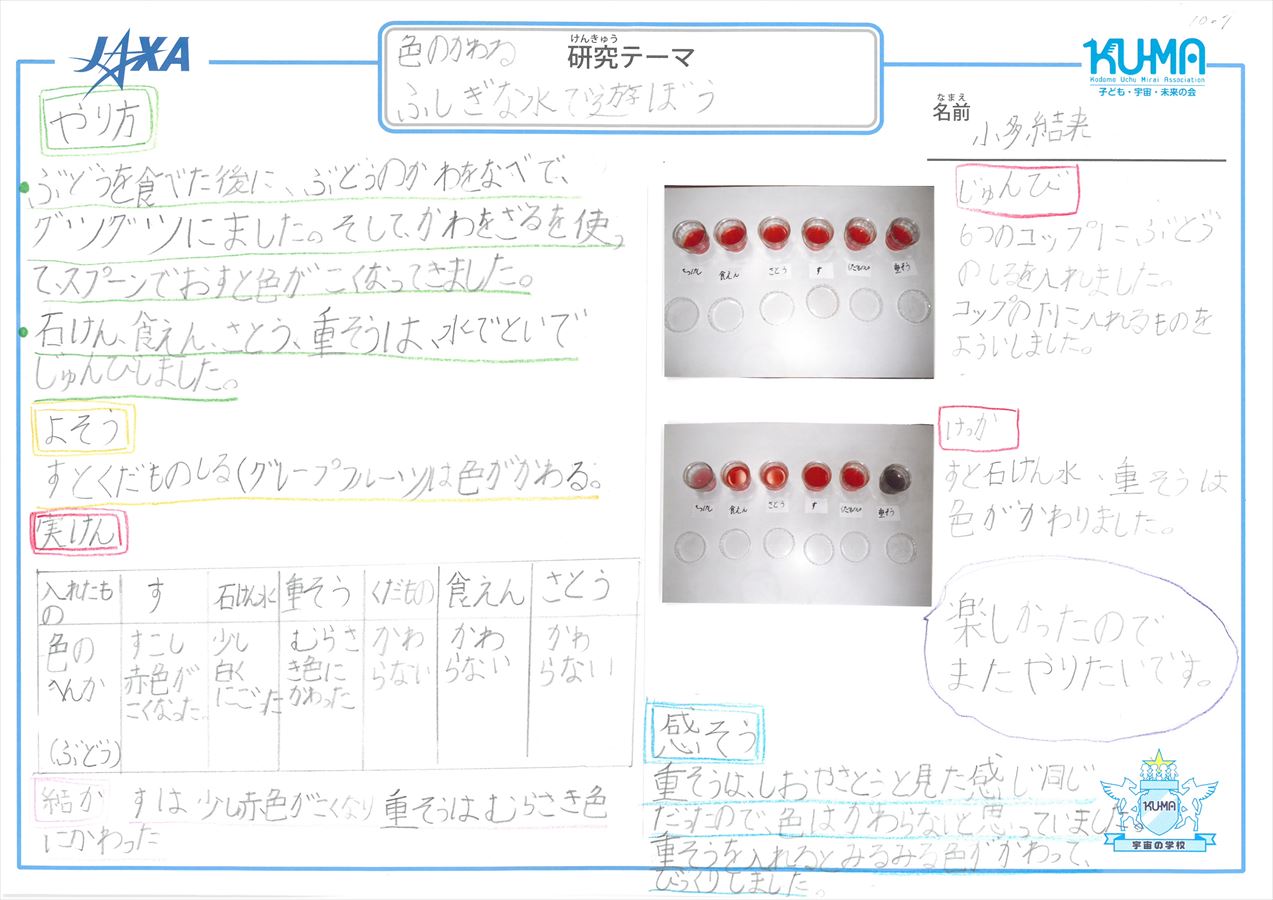 10の7
JAXA
色のかわる
けんきゅう
研究テーマ
ふしぎな水で遊ぼう
KUMA
Kodomo Uchu Mirai Association
子ども・宇宙・未来の会
なまえ
名前
小多結来
やり方
ぶどうを食べた後に、ぶどうのかわをなべで、
グツグツにました。そして、かわをざるを使っ
て、スプーンでおすと色がこくなってきました。
石けん、食えん、さとう、重そうは、水でといで
じゅんびしました。
よそう
すとくだものしる(グレープフルーツ)は色がかわる。
実けん
入れたもの す 石けん水 重そう くだもの 食えん さとう
色のへんか (ぶどう) すこし赤色がこくなった。 少し白くにごった むらさき色にかわった かわらない かわらない かわらない
結か すは少し赤色がこくなり重そうはむらさき色
にかわった
じゅんび
6つのコップに、ぶどう
のしるを入れました。
コップの下に入れるものを
よういしました。
石けん 食えん さとう す くだもの 重そう
けっか
すと石けん水、重そうは
色がかわりました。
石けん 食えん さとう す くだもの 重そう
楽しかったので
またやりたいです。
感そう
重そうは、しおやさとうと見た感じ同じ
だったので、色はかわらないと思っていました。
重そうを入れるとみるみる色がかわって、
びっくりしました。
KUMA
宇宙の学校